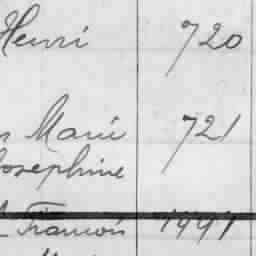 Henri 720
Marie 721
Josephine
François